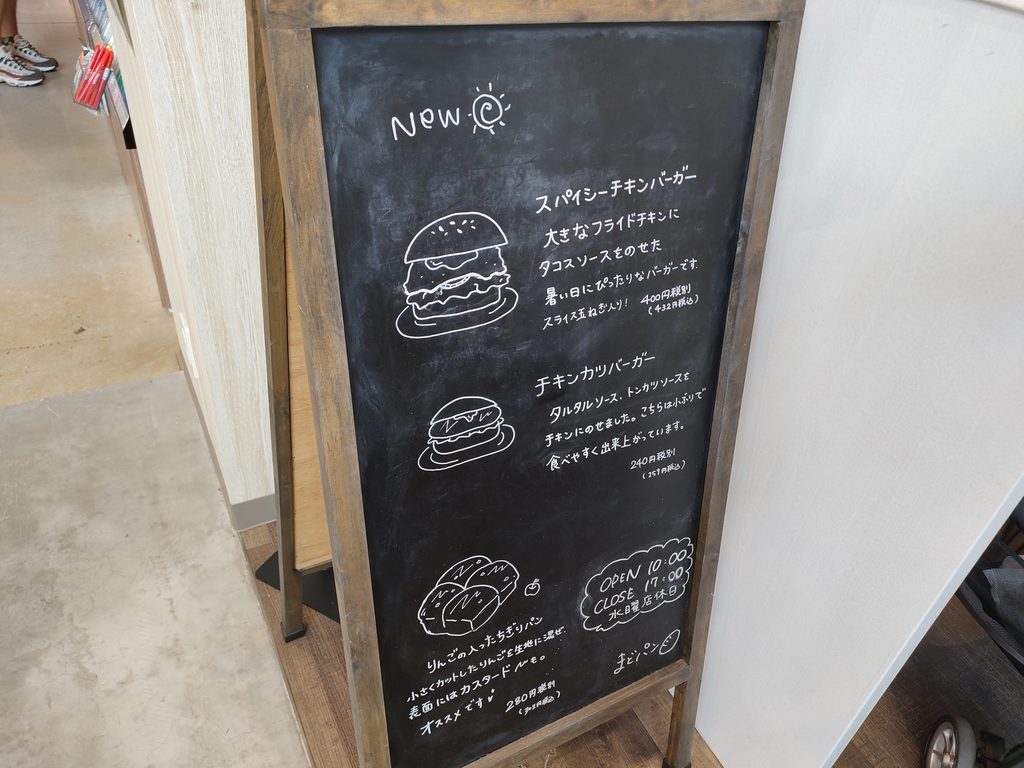 New
スパイシーチキンバーガー
大きなフライドチキンに
タコスソースをのせた
暑い日にぴったりなバーガーです。
スライス玉ねぎ入り! 400円税別
(432円税込)
チキンカツバーガー
タルタルソース、トンカツソースを
チキンにのせました。こちらは小ぶりで
食べやすく出来上がっています。
240円税別
(259円税込)
りんごの入ったちぎりパン
小さくカットしたりんごを生地に混ぜ、
表面にはカスタード〜も。
オススメです
280円税別
(302円税込)
OPEN 10:00
CLOSE 17:00
水曜店休日
まどパン